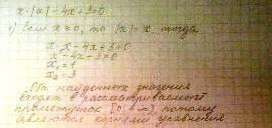 x·|x|-4x+3=0
1) Если x≥0, то |x|=x тогда
x·x-4x+3=0
x²-4x+3=0
x₁=1
x₂=3
Оба найденные значения
входят в рассматриваемый
промежуток [0;+∞), поэтому
являются корнями уравнения